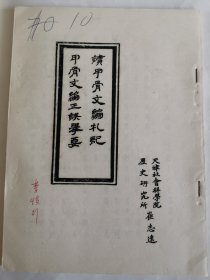 天津社會科學院
歷史研究所 崔志遠
讀甲骨文編札記
甲骨文編正誤舉要